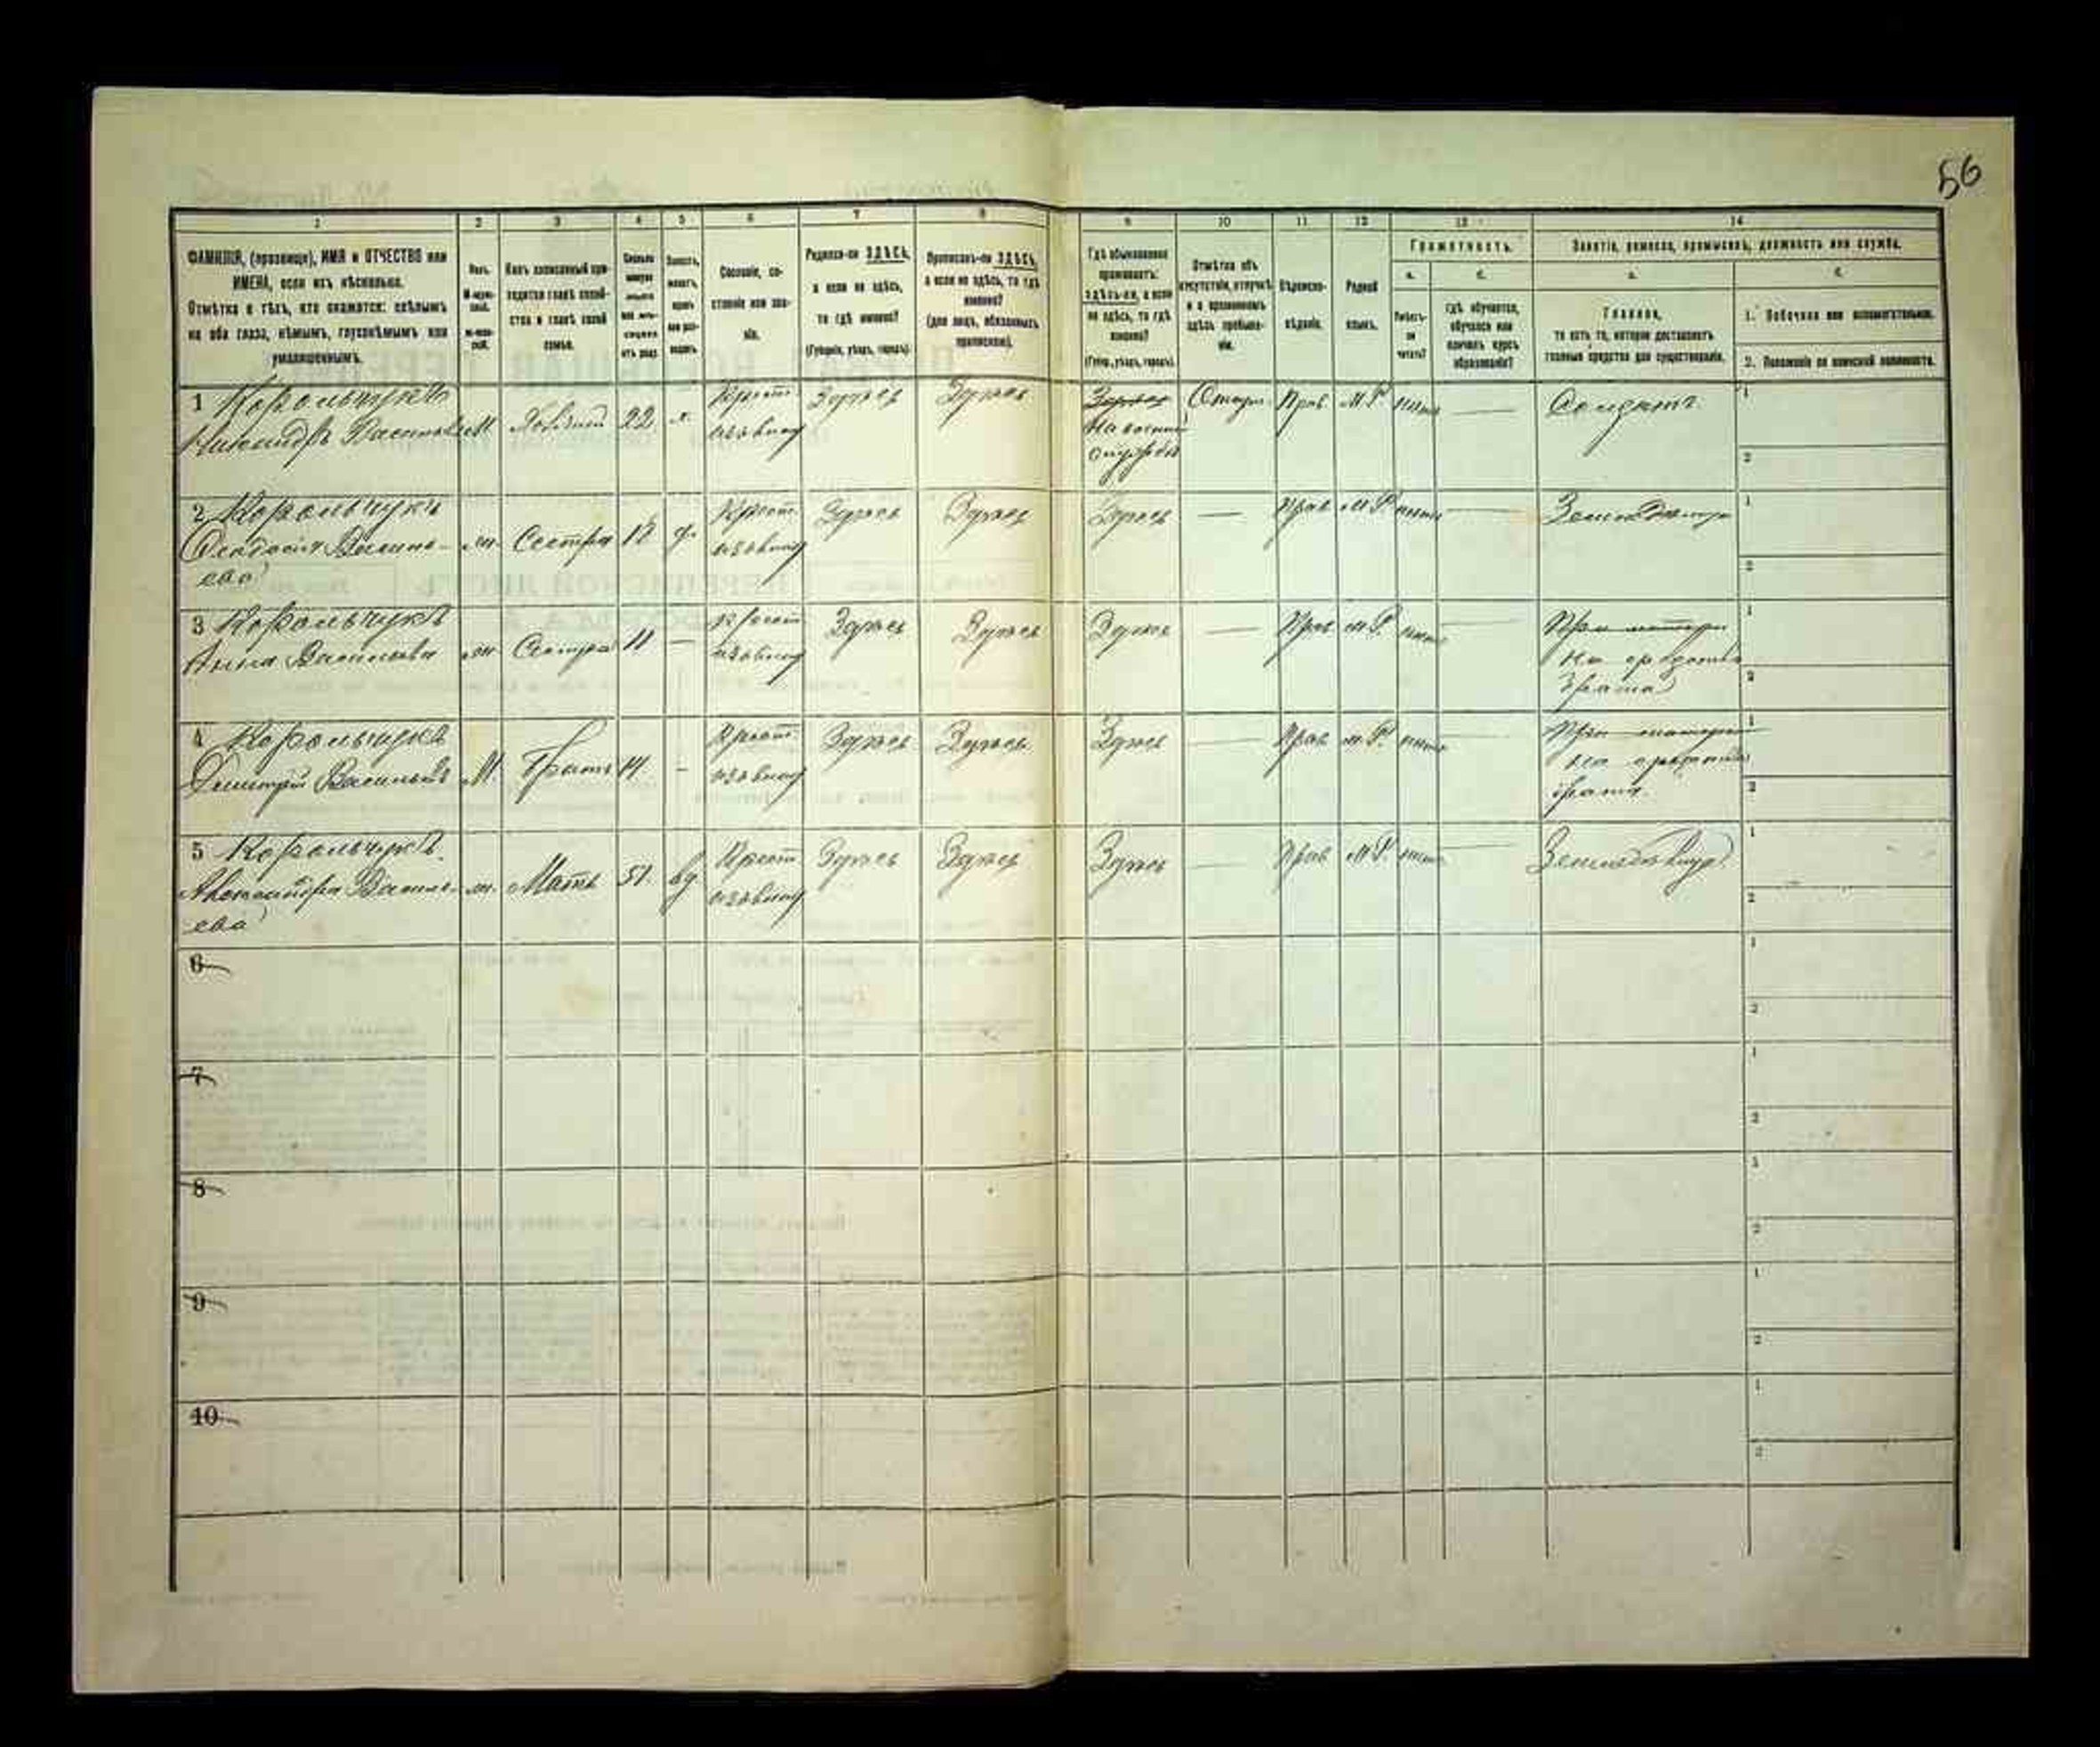 56
1 2 3 4 5 6 7 8 9 10 11 12 13 14
ФАМИЛІЯ, (прозвище), ИМЯ и ОТЧЕСТВО или
ИМЕНА, если ихъ нѣсколько.
Отмѣтка о тѣхъ, кто окажется: слѣпымъ
на оба глаза, нѣмымъ, глухонѣмымъ или
умалишеннымъ.
Полъ.
М-муж-
ской.
Ж-жен-
ской.
Какъ записанный при-
ходится главѣ хозяй-
ства и главѣ своей
семьи.
Сколько
минуло
лѣтъ
или мѣ-
сяцевъ
отъ роду.
Холостъ,
женатъ,
вдовъ
или раз-
веденъ.
Сословіе, со-
стояніе или зва-
ніе.
Родился-ли ЗДѢСЬ,
а если не здѣсь,
то гдѣ именно?
(Губернія, уѣздъ, городъ).
Приписанъ-ли ЗДѢСЬ,
а если не здѣсь, то гдѣ
именно?
(для лицъ, обязанныхъ
припискою).
Гдѣ обыкновенно
проживаетъ:
здѣсь-ли, а если
не здѣсь, то гдѣ
именно?
(Губер., уѣздъ, городъ).
Отмѣтка объ
отсутствіи, отлучкѣ
и о временномъ
здѣсь пребыва-
ніи.
Вѣроиспо-
вѣданіе.
Родной
языкъ.
Грамотность.
а. б.
Умѣетъ-
ли
читать?
Гдѣ обучается,
обучался или
кончилъ курсъ
образованія?
Занятіе, ремесло, промыселъ, должность или служба.
а. б.
Главное,
то есть то, которое доставляетъ
главныя средства для существованія.
1. Побочное или вспомогательное.
2. Положеніе по воинской повинности.
1 Корольчукъ
Никандръ Васильевъ
М Хозяинъ 22 х.
Крест.
Здѣсь Здѣсь
Здѣсь
На военной
службѣ
Прав. М.Р. нѣтъ — Солдатъ
1
2
2 Корольчукъ
Феодосія Василь-
ева
ж. Сестра 18
Крест.
Здѣсь Здѣсь
Здѣсь — Прав М.Р. нѣтъ —
1
2
3 Корольчукъ
Анна Васильева
ж. Сестра 11 —
Крест
Здѣсь Здѣсь
Здѣсь — Прав М.Р. нѣтъ —
При матери
на средства
брата
1
2
4 Корольчукъ
Димитрій Васильевъ
М. Братъ 14 -
Крест
Здѣсь Здѣсь
Здѣсь — Прав М.Р. нѣтъ —
При матери
на средства
брата.
1
2
5 Корольчукъ
Александра Василь-
ева
ж. Мать 51. вд
Крест
Здѣсь Здѣсь
Здѣсь — Прав М.Р. нѣтъ —
1
2
6
1
2
7
1
2
8
1
2
9
1
2
10
1
2